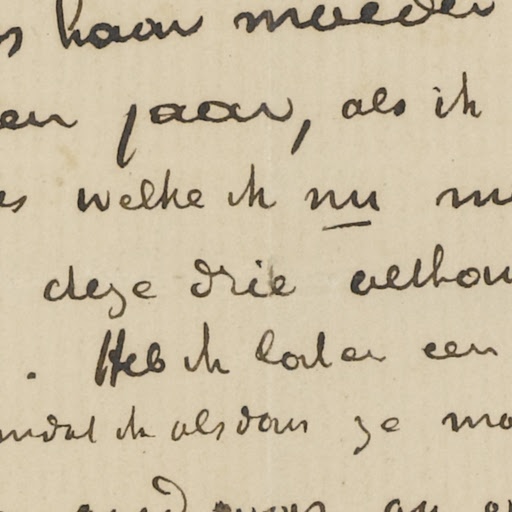 haar moeder
en jaar, als ik
es welke ik nu
deze drie
. Heb ik later een
omdat ik alsdan ze